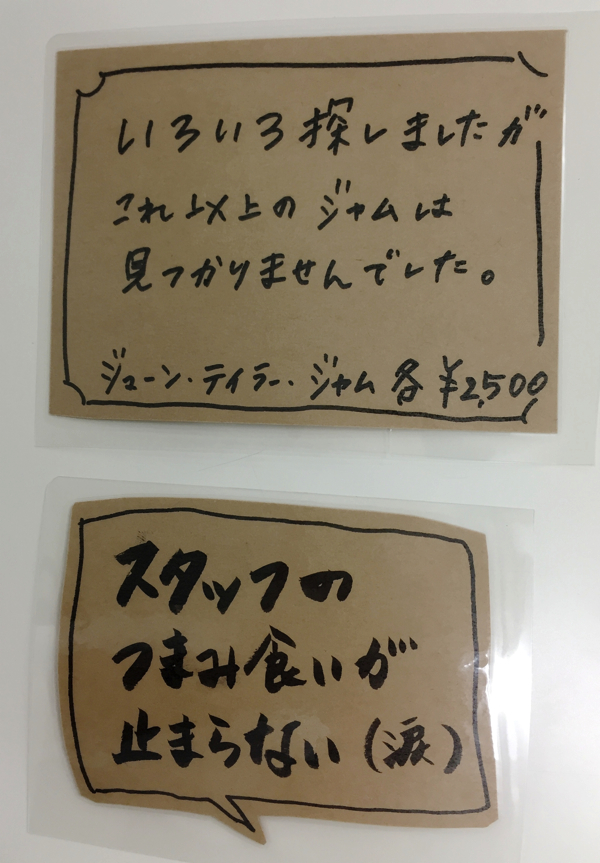 いろいろ探しましたが
これ以上のジャムは
見つかりませんでした。
ジューン・テイラー・ジャム 各¥2,500
スタッフの
つまみ食いが
止まらない(涙)